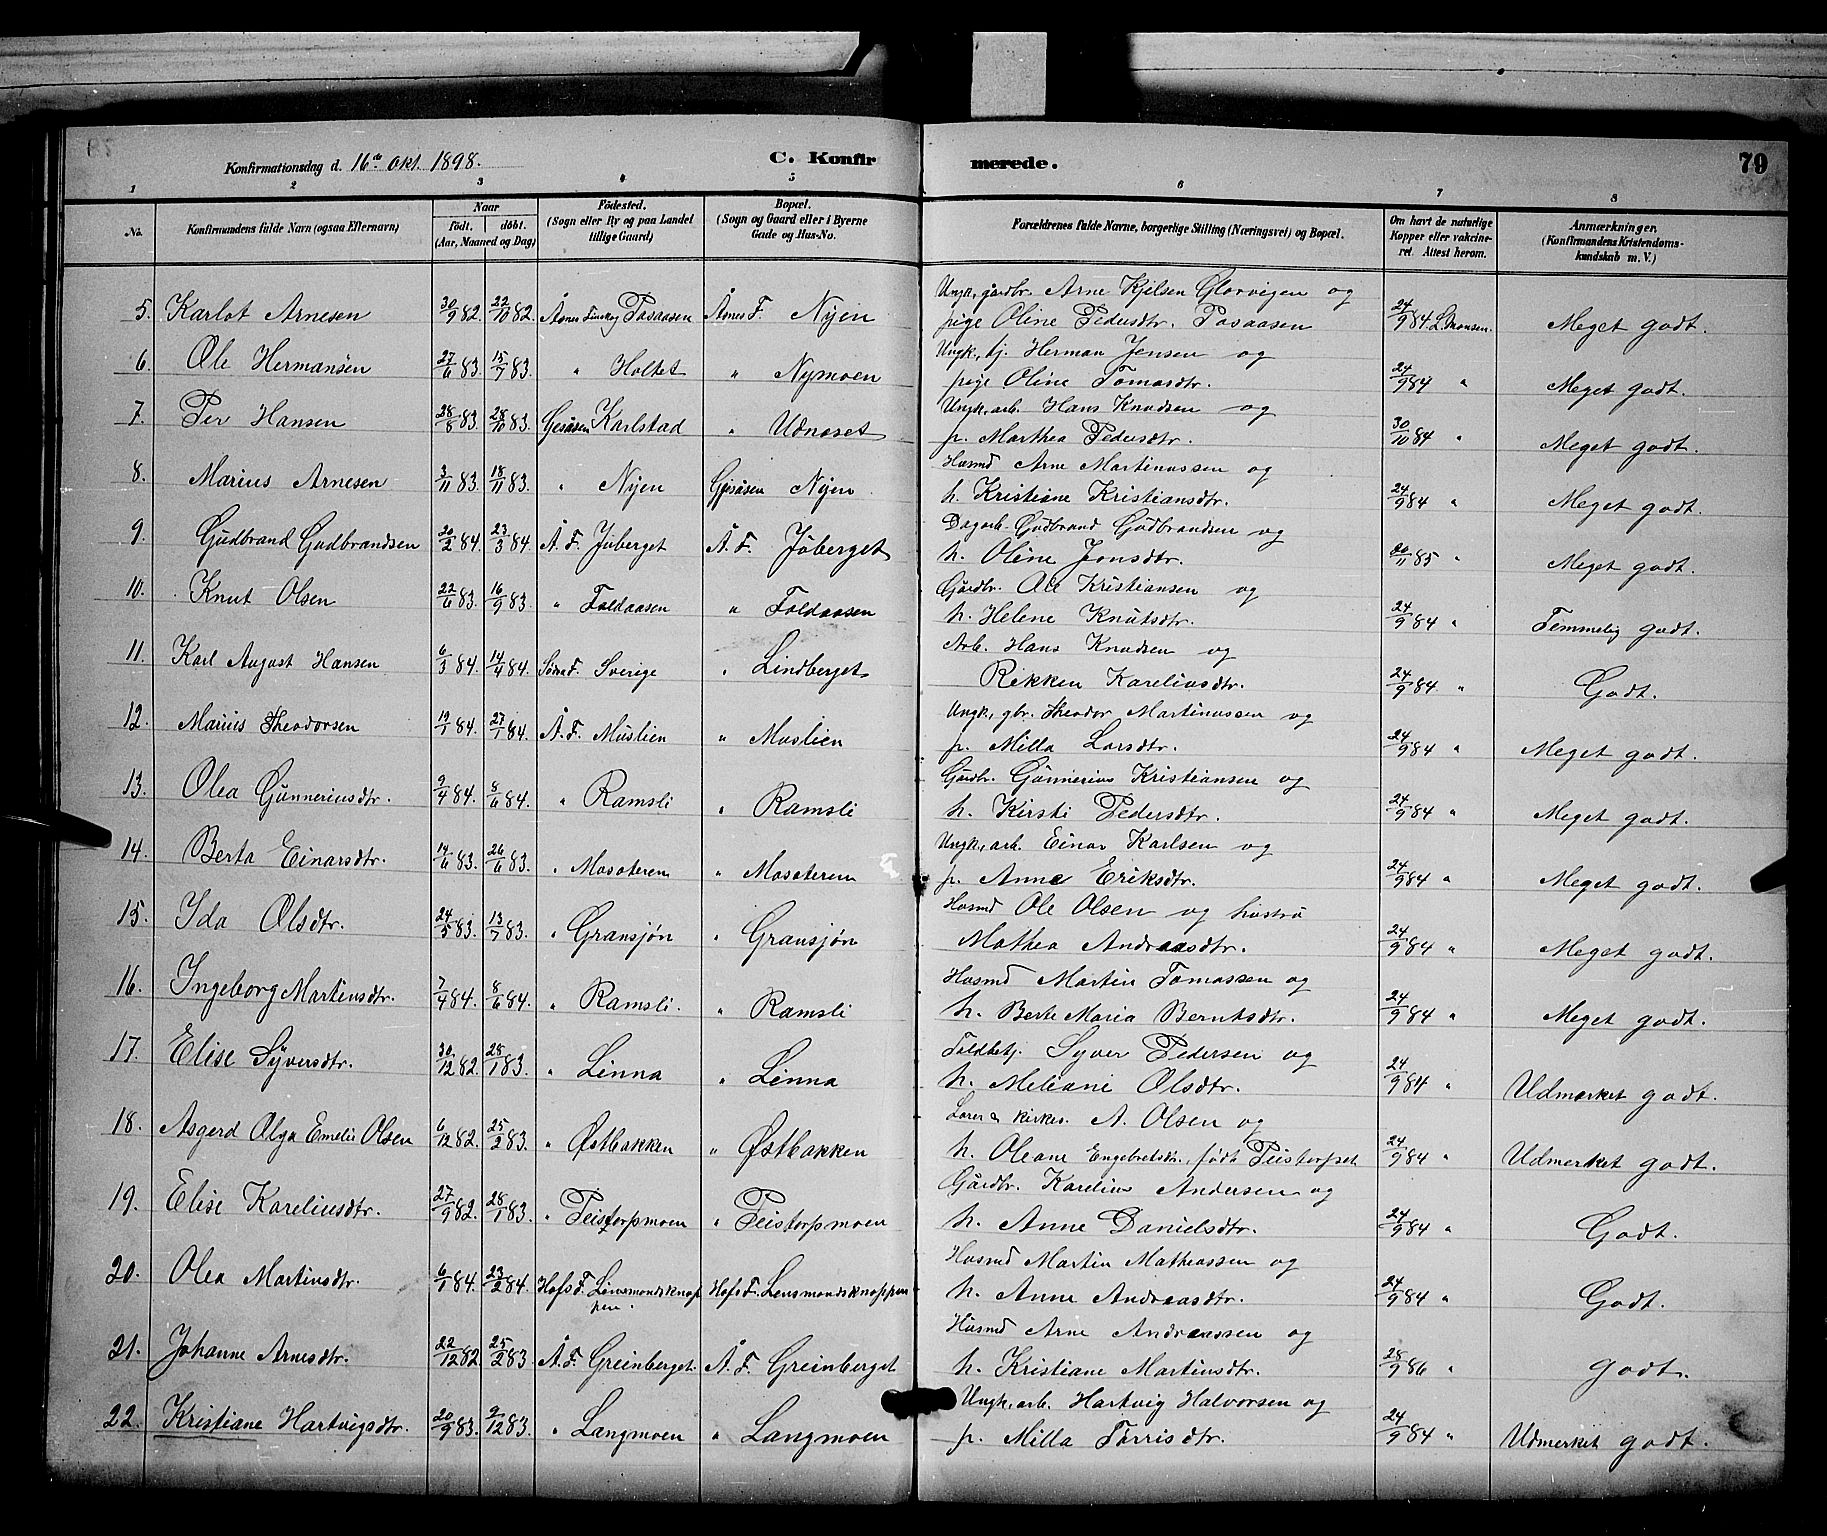 Konfirmationsdag d. 16de Okt. 1898. C. Konfirmerede. 79
1 2 3 4 5 6 7 8
No. Konfirmandens fulde Navn (ogsaa Efternavn) Naar født. døbt. (Aar, Maaned og Dag) Fødested. (Sogn eller By og paa Landet tillige Gaard) Bopæl. (Sogn og Gaard eller i Byerne Gade og Hus-No. Forældrenes fulde Navne, borgerlige Stilling (Næringsvei) og Bopæl. Om havt de naturlige Kopper eller vakcineret. Attest herom. Anmærkninger. (Konfirmandens Kristendomskundskab m. V.)
5. Karlot Arnesen 30/9 82. 22/10 82. Åsnes Finskog Pasaasen Åsnes F. Nyen Ungk, gårdbr. Arne Kjelsen Glorvigen og
pige Oline Pedersdtr. Pasaasen 24/9 84. L. Monsen. Meget godt.
6. Ole Hermansen 27/6 83. 15/7 83. " Holtet " Nymoen Ungk, tj. Herman Jensen og
pige Oline Tomasdtr. 24/9 84 " Meget godt.
7. Per Hansen 28/8 83. 28/10 83. Gjesåsen Karlstad " Udnøset Ungk, arb. Hans Knudsen og
p. Marthea Pedersdtr. 30/10 84 " Meget godt.
8. Marius Arnesen 3/11 83. 18/11 83. " Nyen Gjesåsen Nyen Husmd Arne Martinussen og
h. Kristiane Kristiansdtr. 24/9 84 " Meget godt.
9. Gudbrand Gudbrandsen 20/2 84. 23/3 84. Å. F. Jøberget Å. F. Jøberget Dagarb. Gudbrand Gudbrandsen og
h. Oline Jonsdtr. 20/11 85 " Meget godt.
10. Knut Olsen 22/6 83. 16/9 83. " Faldaasen " Faldaasen Gårdbr. Ole Kristiansen og
h. Helene Knutsdtr. 24/9 84 " Temmelig godt.
11. Karl August Hansen 6/3 84. 14/4 84. Søndre F. Sverige " Lindberget Arb. Hans Knudsen og
Rikken Kareliusdtr. 24/9 84 " Godt.
12. Marius Theodorsen 19/1 84. 27/1 84. Å. F. Muslien " Muslien Ungk, gbr. Theodor Martinussen og
p. Milla Larsdtr. 24/9 84 " Meget godt.
13. Olea Gunneriusdtr. 9/4 84. 8/6 84. " Ramsli " Ramsli Gårdbr. Gunnerius Kristiansen og
h. Kirsti Pedersdtr. 24/9 84 " Meget godt.
14. Berta Einarsdtr. 14/6 83. 26/6 83. " Mosoteren " Mosoteren Ungk, arb. Einar Karlsen og
p. Anne Eriksdtr. 24/9 84 " Meget godt.
15. Ida Olsdtr. 24/5 83. 13/7 83. " Gransjøn " Gransjøn Husmd Ole Olsen og hustru
Mathea Andreasdtr. 24/9 84 " Meget godt.
16. Ingeborg Martinsdtr. 7/4 84. 8/6 84. " Ramsli. " Ramsli Husmd Martin Tomassen og
h. Berte Maria Berntsdtr. 24/9 84 " Meget godt.
17. Elise Syversdtr. 30/12 82. 28/1 83. " Linna " Linna Toldbetj. Syver Pedersen og
h. Meliane Olsdtr. 24/9 84 " Udmærket godt.
18. Asgerd Olga Emelie Olsen 6/12 82. 25/2 83. " Østbakken " Østbakken Lærer & kirkes. A. Olsen og
h. Oleane Engebretsdtr. født Peistorpet 24/9 84 " Udmerket godt.
19. Elise Kareliusdtr. 27/9 82. 28/1 83. " Peistorpmoen " Peistorpmoen Gårdbr. Karelius Andersen og
h. Anne Danielsdtr. 24/9 84 " Godt.
20. Olea Martinsdtr. 6/1 84. 23/2 84. Hofs F. Linsmondsknoppen. Hofs F. Lensmondsknoppen Husmd Martin Matheassen og
h. Anne Andreasdtr. 24/9 84 " Godt.
21. Johanne Arnesdtr. 22/12 82. 25/2 83. Å. F. Greinberget. Å. F. Greinberget Husmd Arne Andreassen og
h. Kristiane Martinsdtr. 28/9 86 " godt.
22. Kristiane Hartvigsdtr. 20/9 83. 2/12 83. " Langmoen " Langmoen Ungk, arb. Hartvig Halvorsen og
p. Milla Tørrisdtr. 24/9 84 " Udmerket godt.